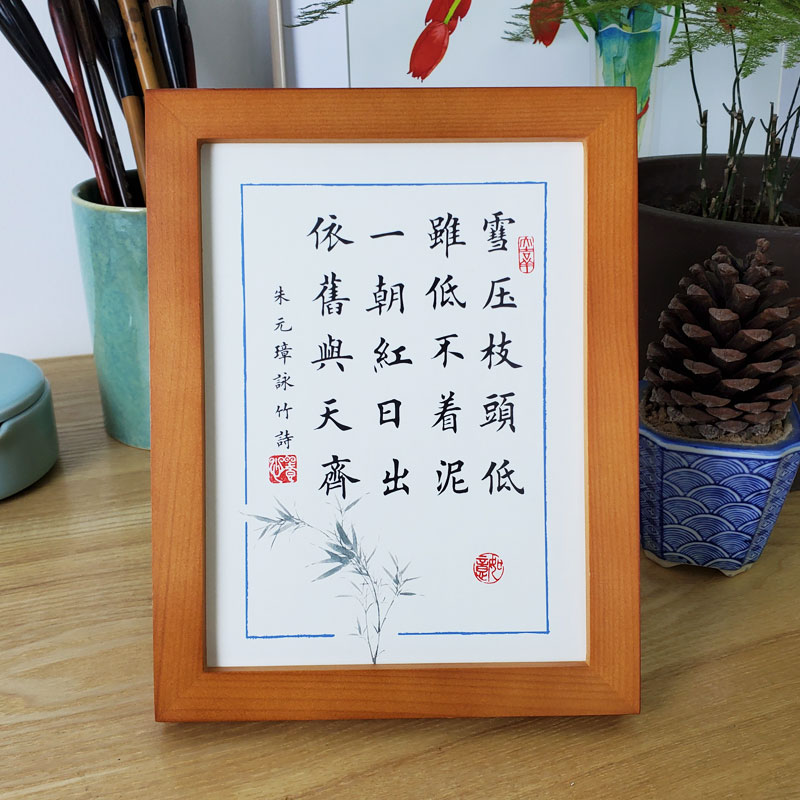 大吉羊
雪压枝頭低
雖低不着泥
一朝紅日出
依舊與天齊
朱元璋詠竹詩
如意